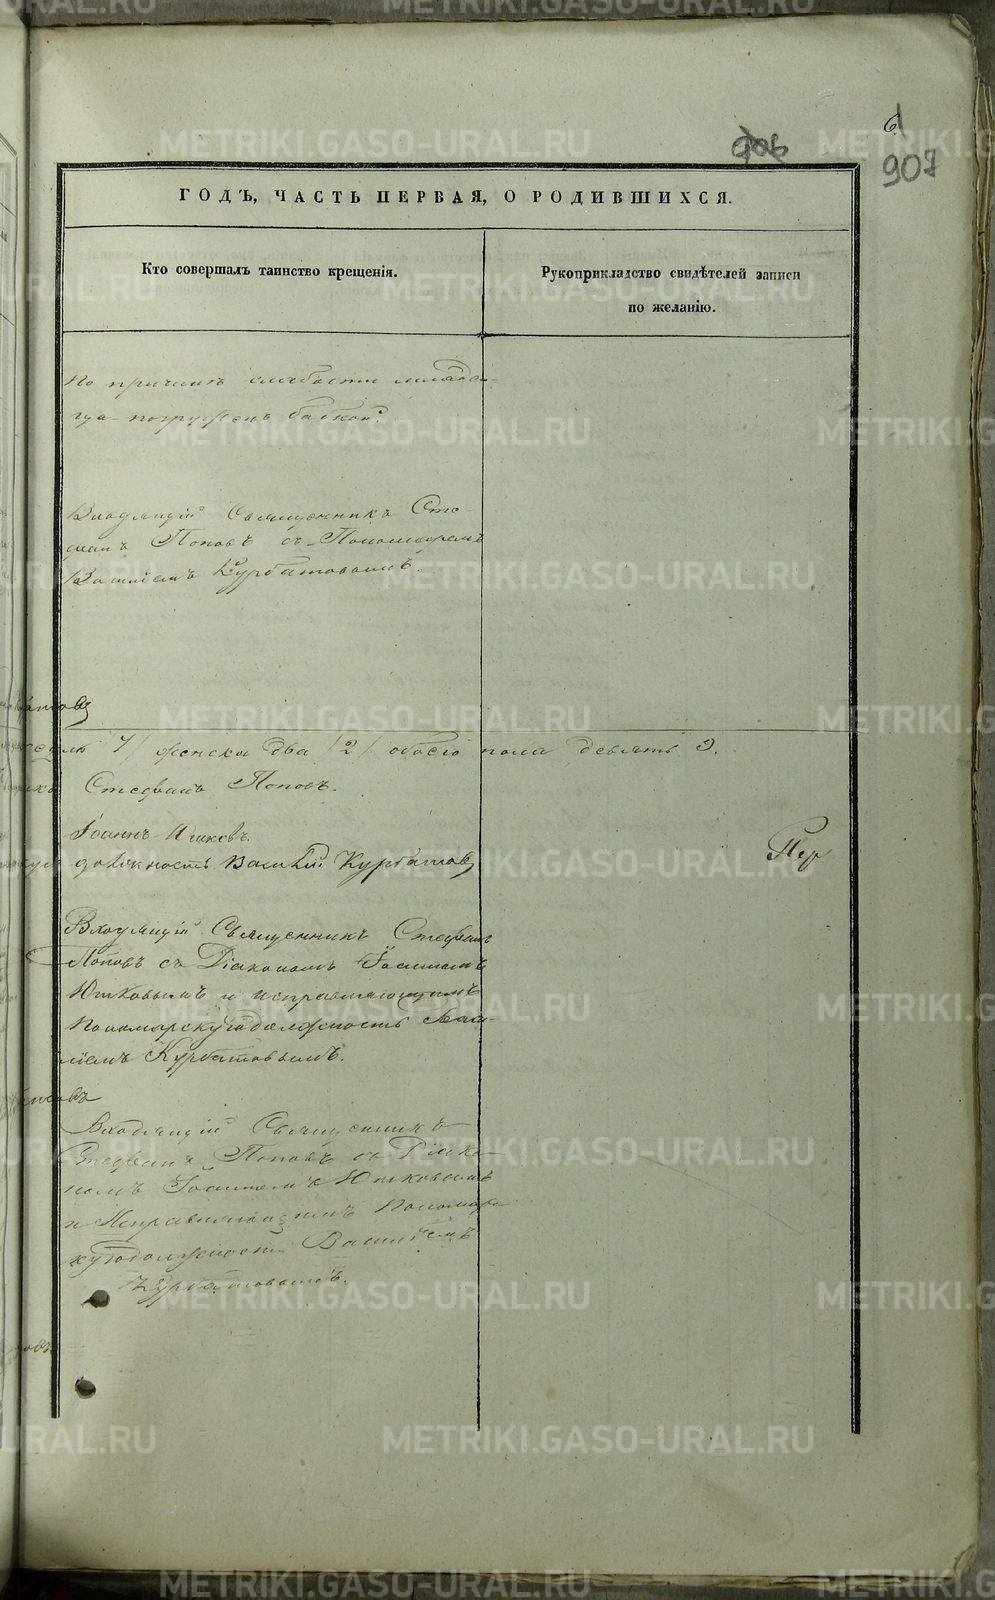 6
906
907
ГОДЪ, ЧАСТЬ ПЕРВАЯ, О РОДИВШИХСЯ.
Кто совершалъ таинство крещенія.
Рукоприкладство свидѣтелей записи
по желанію.
по причинѣ слабости младен-
ца погруженъ бабкой.
Входящій Священникъ Сте-
фанъ Поповъ съ Пономаремъ
Василіемъ Курбатовымъ.
7/ женска два /2/ обоего пола девять 9.
Стефанъ Поповъ.
Іоаннъ Юшковъ.
должность Василій Курбатовъ
Пер
Входящій Священникъ Стефанъ
Поповъ съ Діакономъ Іоанномъ
Юшковымъ и исправляющимъ
Пономарскую должность Васи-
ліемъ Курбатовымъ.
Входящій Священникъ
Стефанъ Поповъ съ Діако-
номъ Іоанномъ Юшковымъ
и Исправляющимъ Пономарс-
кую должность Василіемъ
Курбатовымъ.
METRIKI.GASO-URAL.RU